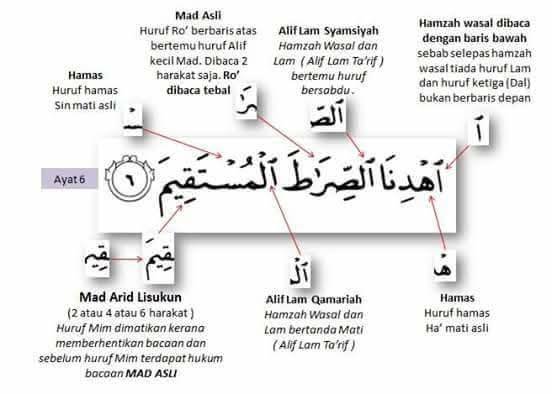 Mad Asli
Huruf Ro’ berbaris atas
bertemu huruf Alif
kecil Mad. Dibaca 2
harakat saja. Ro’
dibaca tebal
Alif Lam Syamsiyah
Hamzah Wasal dan
Lam ( Alif Lam Ta’rif )
bertemu huruf
bersabdu .
Hamzah wasal dibaca
dengan baris bawah
sebab selepas hamzah
wasal tiada huruf Lam
dan huruf ketiga (Dal)
bukan berbaris depan
Hamas
Huruf hamas
Sin mati asli
سْـ
رَٰ
ٱلصِّ
ٱ
Ayat 6
ٱهْدِنَا ٱلصِّرَٰطَ ٱلْمُسْتَقِيمَ ٦
قِيمْ
قِيمَ
ٱلْ
هْـ
Mad Arid Lisukun
(2 atau 4 atau 6 harakat )
Huruf Mim dimatikan kerana
memberhentikan bacaan dan
sebelum huruf Mim terdapat hukum
bacaan MAD ASLI
Alif Lam Qamariah
Hamzah Wasal dan
Lam bertanda Mati
( Alif Lam Ta’rif )
Hamas
Huruf hamas
Ha’ mati asli